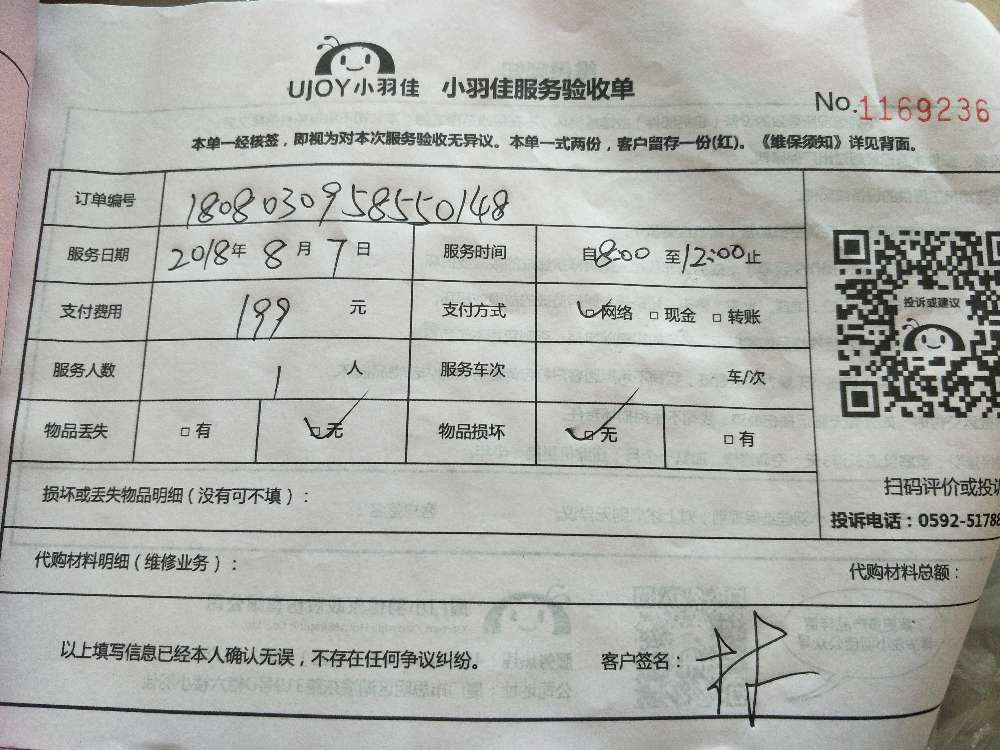 UJOY小羽佳 小羽佳服务验收单
No.1169236
本单一经核签，即视为对本次服务验收无异议。本单一式两份，客户留存一份(红)。《维保须知》详见背面。
订单编号 1808030958550148
服务日期 2018年 8月 7日 服务时间 自8:00 至12:00止
支付费用 199 元 支付方式 ☑网络 □现金 □转账
服务人数 1 人 服务车次 车/次
物品丢失 □有 ☑无 物品损坏 ☑无 □有
投诉或建议
损坏或丢失物品明细（没有可不填）：
扫码评价或投诉
投诉电话：0592-5178
代购材料明细（维修业务）：
代购材料总额：
以上填写信息已经本人确认无误，不存在任何争议纠纷。 客户签名：